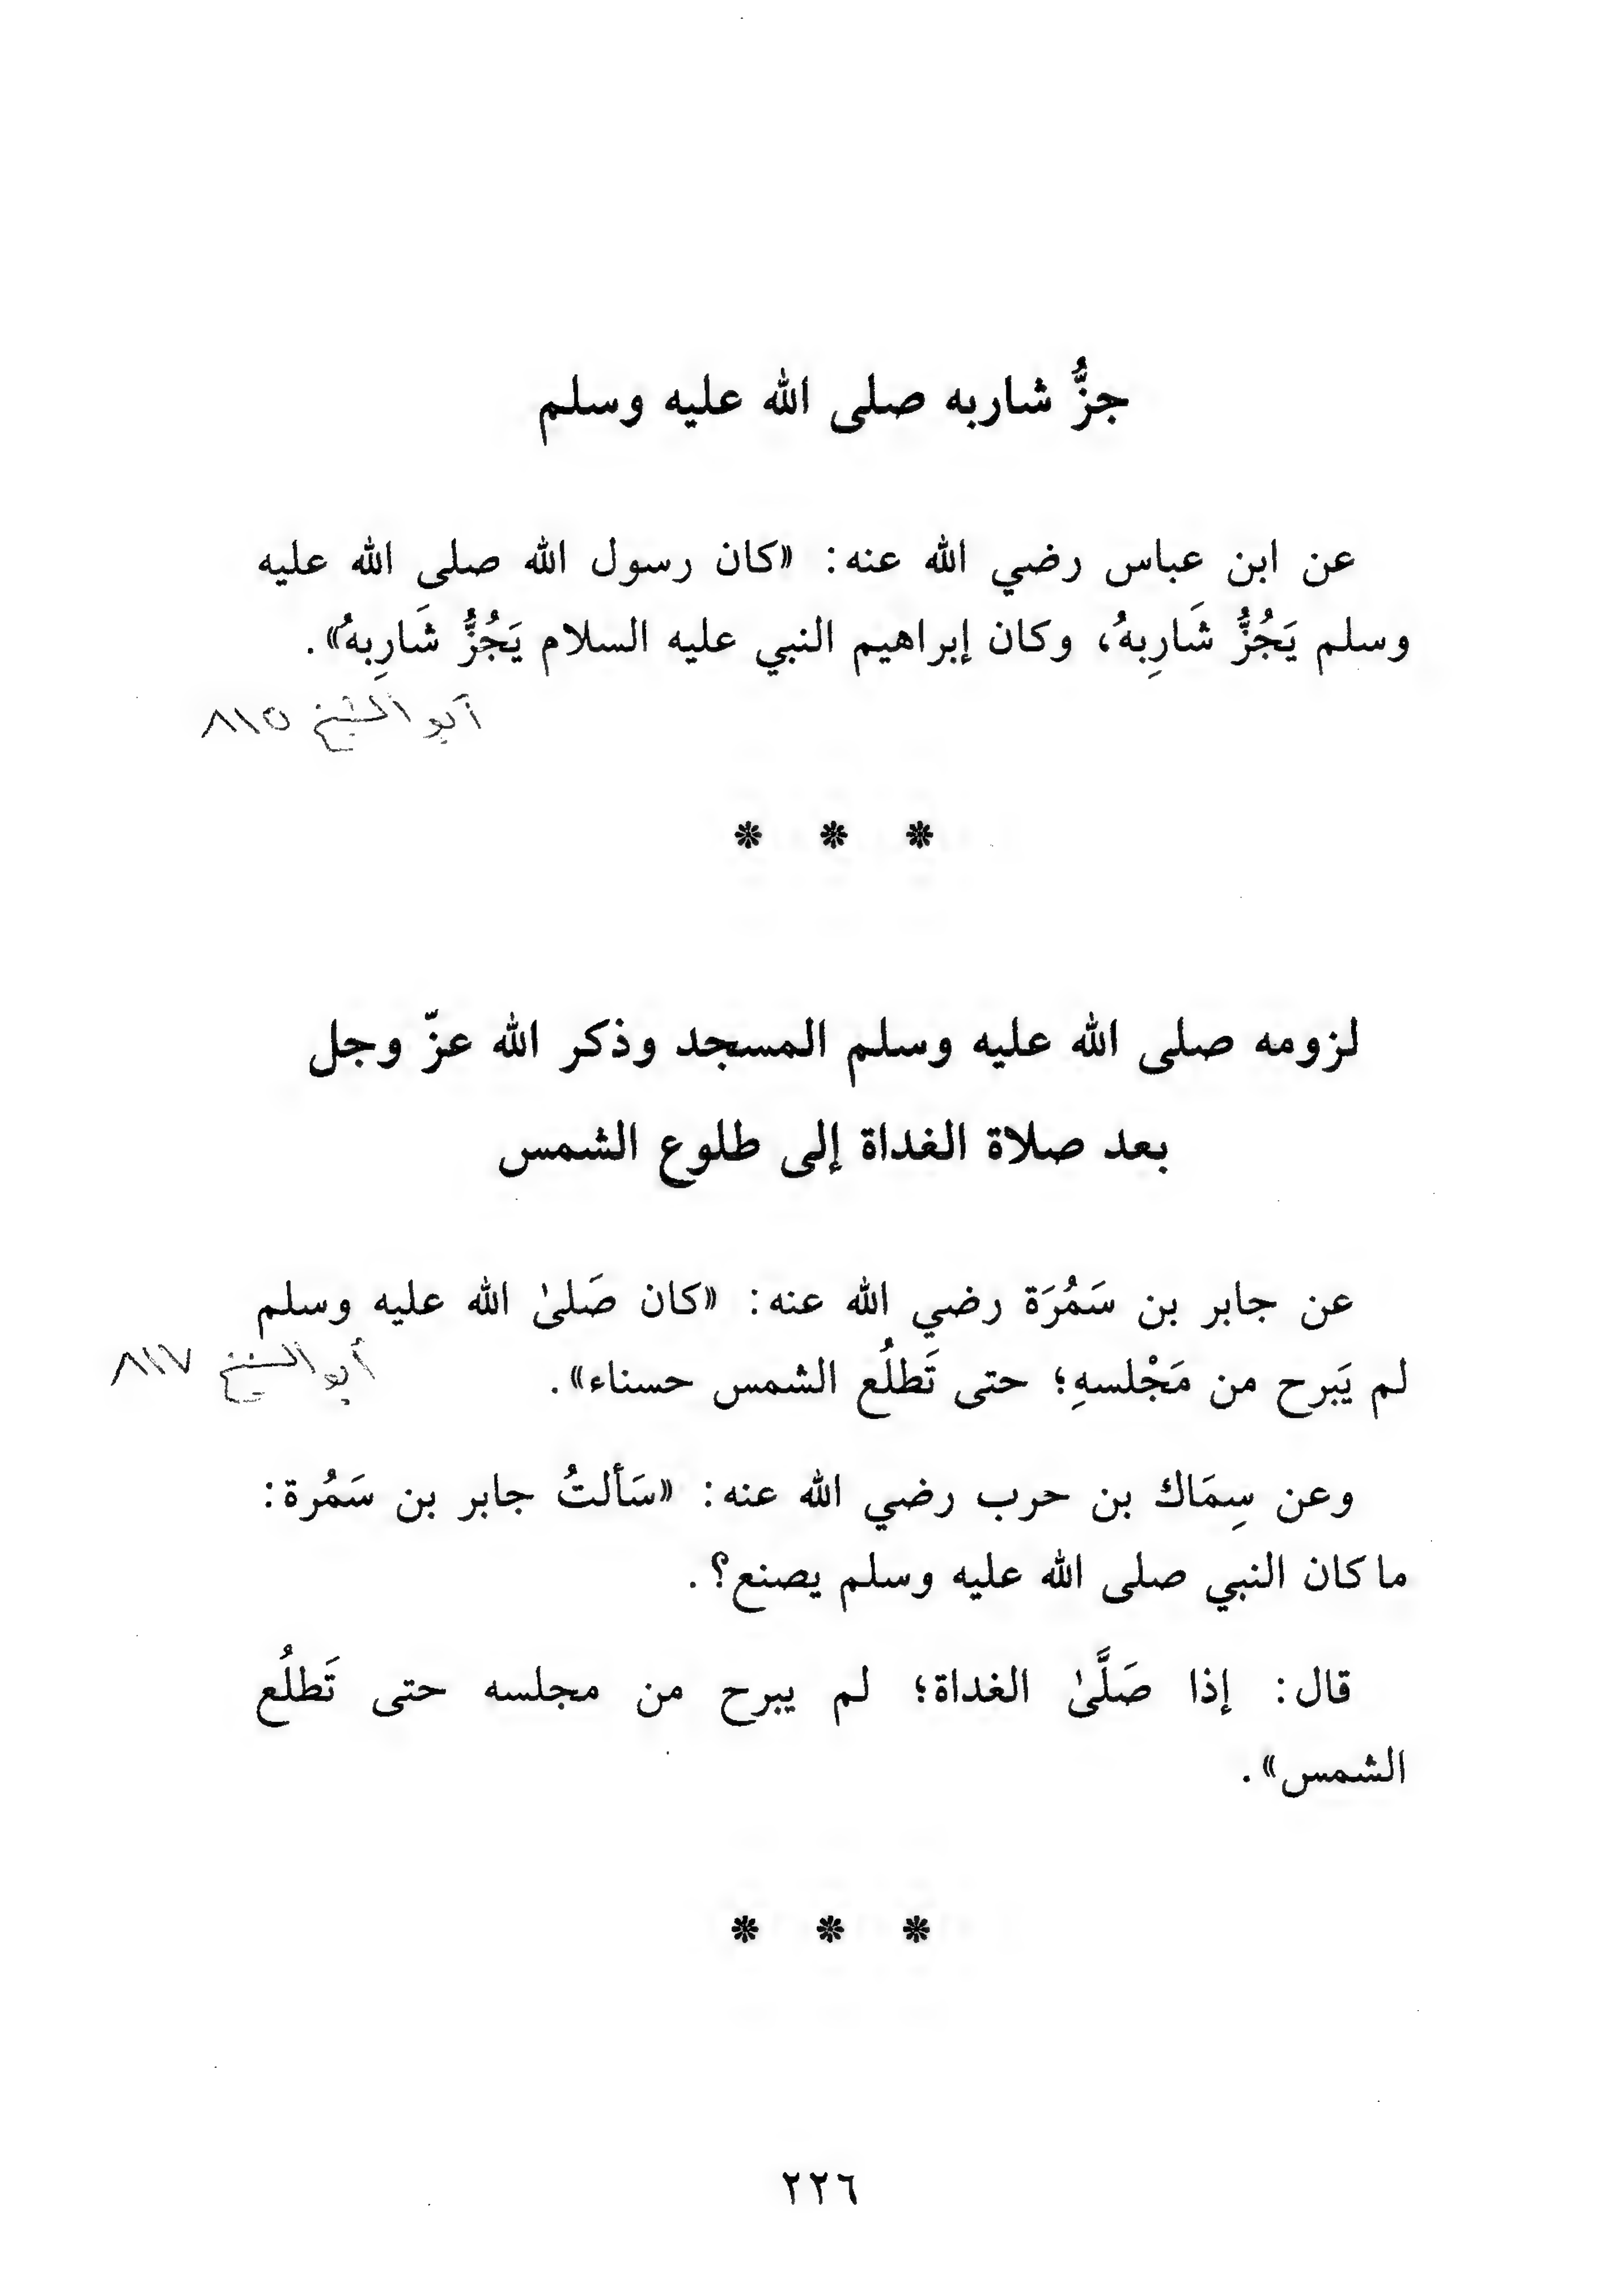 جزُّ شاربه صلى الله عليه وسلم
عن ابن عباس رضي الله عنه: «كان رسول الله صلى الله عليه
وسلم يَجُزُّ شَارِبهُ، وكان إبراهيم النبي عليه السلام يَجُزُّ شَارِبهُ».
أبو الشيخ ٨١٥
* * *
لزومه صلى الله عليه وسلم المسجد وذكر الله عزّ وجل
بعد صلاة الغداة إلى طلوع الشمس
عن جابر بن سَمُرَة رضي الله عنه: «كان صَلىٰ الله عليه وسلم
أبو الشيخ ٨١٧
لم يَبرح من مَجْلسهِ؛ حتى تَطلُع الشمس حسناء».
وعن سِمَاك بن حرب رضي الله عنه: «سَألتُ جابر بن سَمُرة:
ما كان النبي صلى الله عليه وسلم يصنع؟.
قال: إذا صَلَّىٰ الغداة؛ لم يبرح من مجلسه حتى تَطلُع
الشمس».
* * *
٢٢٦